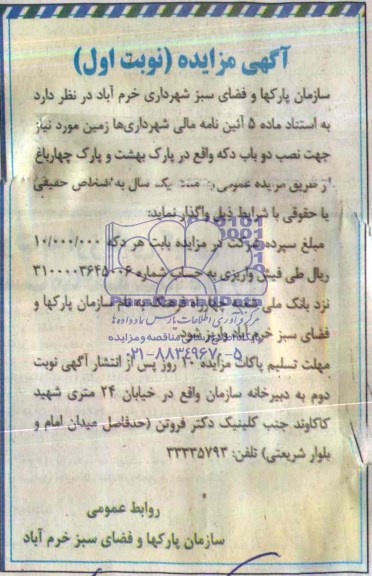 آگهی مزایده (نوبت اول)
سازمان پارکها و فضای سبز شهرداری خرم آباد در نظر دارد
به استناد ماده ۵ آئین نامه مالی شهرداری‌ها زمین مورد نیاز
جهت نصب دو باب دکه واقع در پارک بهشت و پارک چهارباغ
از طریق مزایده عمومی به مدت یک سال به اشخاص حقیقی
یا حقوقی با شرایط ذیل واگذار نماید:
مبلغ سپرده شرکت در مزایده بابت هر دکه ۱۰/۰۰۰/۰۰۰
ریال طی فیش واریزی به حساب شماره
نزد بانک ملی شعبه چهارراه فرهنگ به نام سازمان پارکها و
فضای سبز خرم آباد واریز شود
مهلت تسلیم پاکات مزایده ۱۰ روز پس از انتشار آگهی نوبت
دوم به دبیرخانه سازمان واقع در خیابان ۲۴ متری شهید
کاکاوند جنب کلینیک دکتر فروتن (حدفاصل میدان امام و
بلوار شریعتی) تلفن: ۳۳۲۳۵۷۹۳
روابط عمومی
سازمان پارکها و فضای سبز خرم آباد
مرکز فرآوری اطلاعات پارس نماد داده‌ها
۰۲۱-۸۸۳۴۹۶۷۰-۵